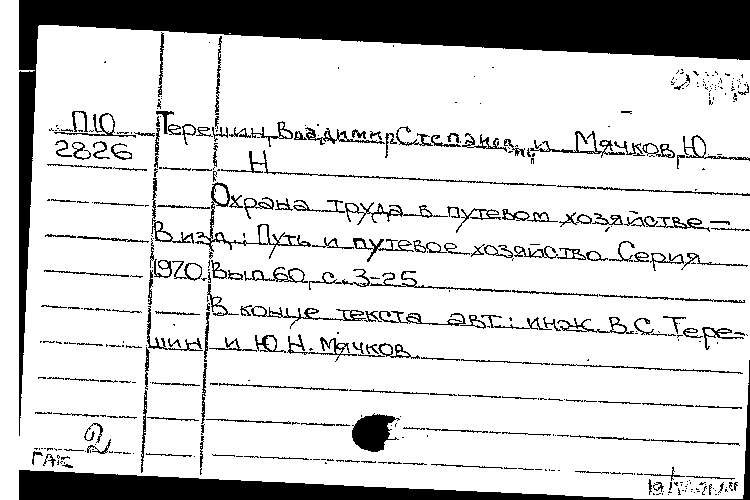 П10
2826
Терешин, Владимир Степанович и Мячков, Ю.
Н.
Охрана труда в путевом хозяйстве. —
В изд.: Путь и путевое хозяйство. Серия
1970. Вып 60, с. 3-25.
В конце текста авт.: инж. В.С. Тере-
шин и Ю.Н. Мячков.
2
ГАК